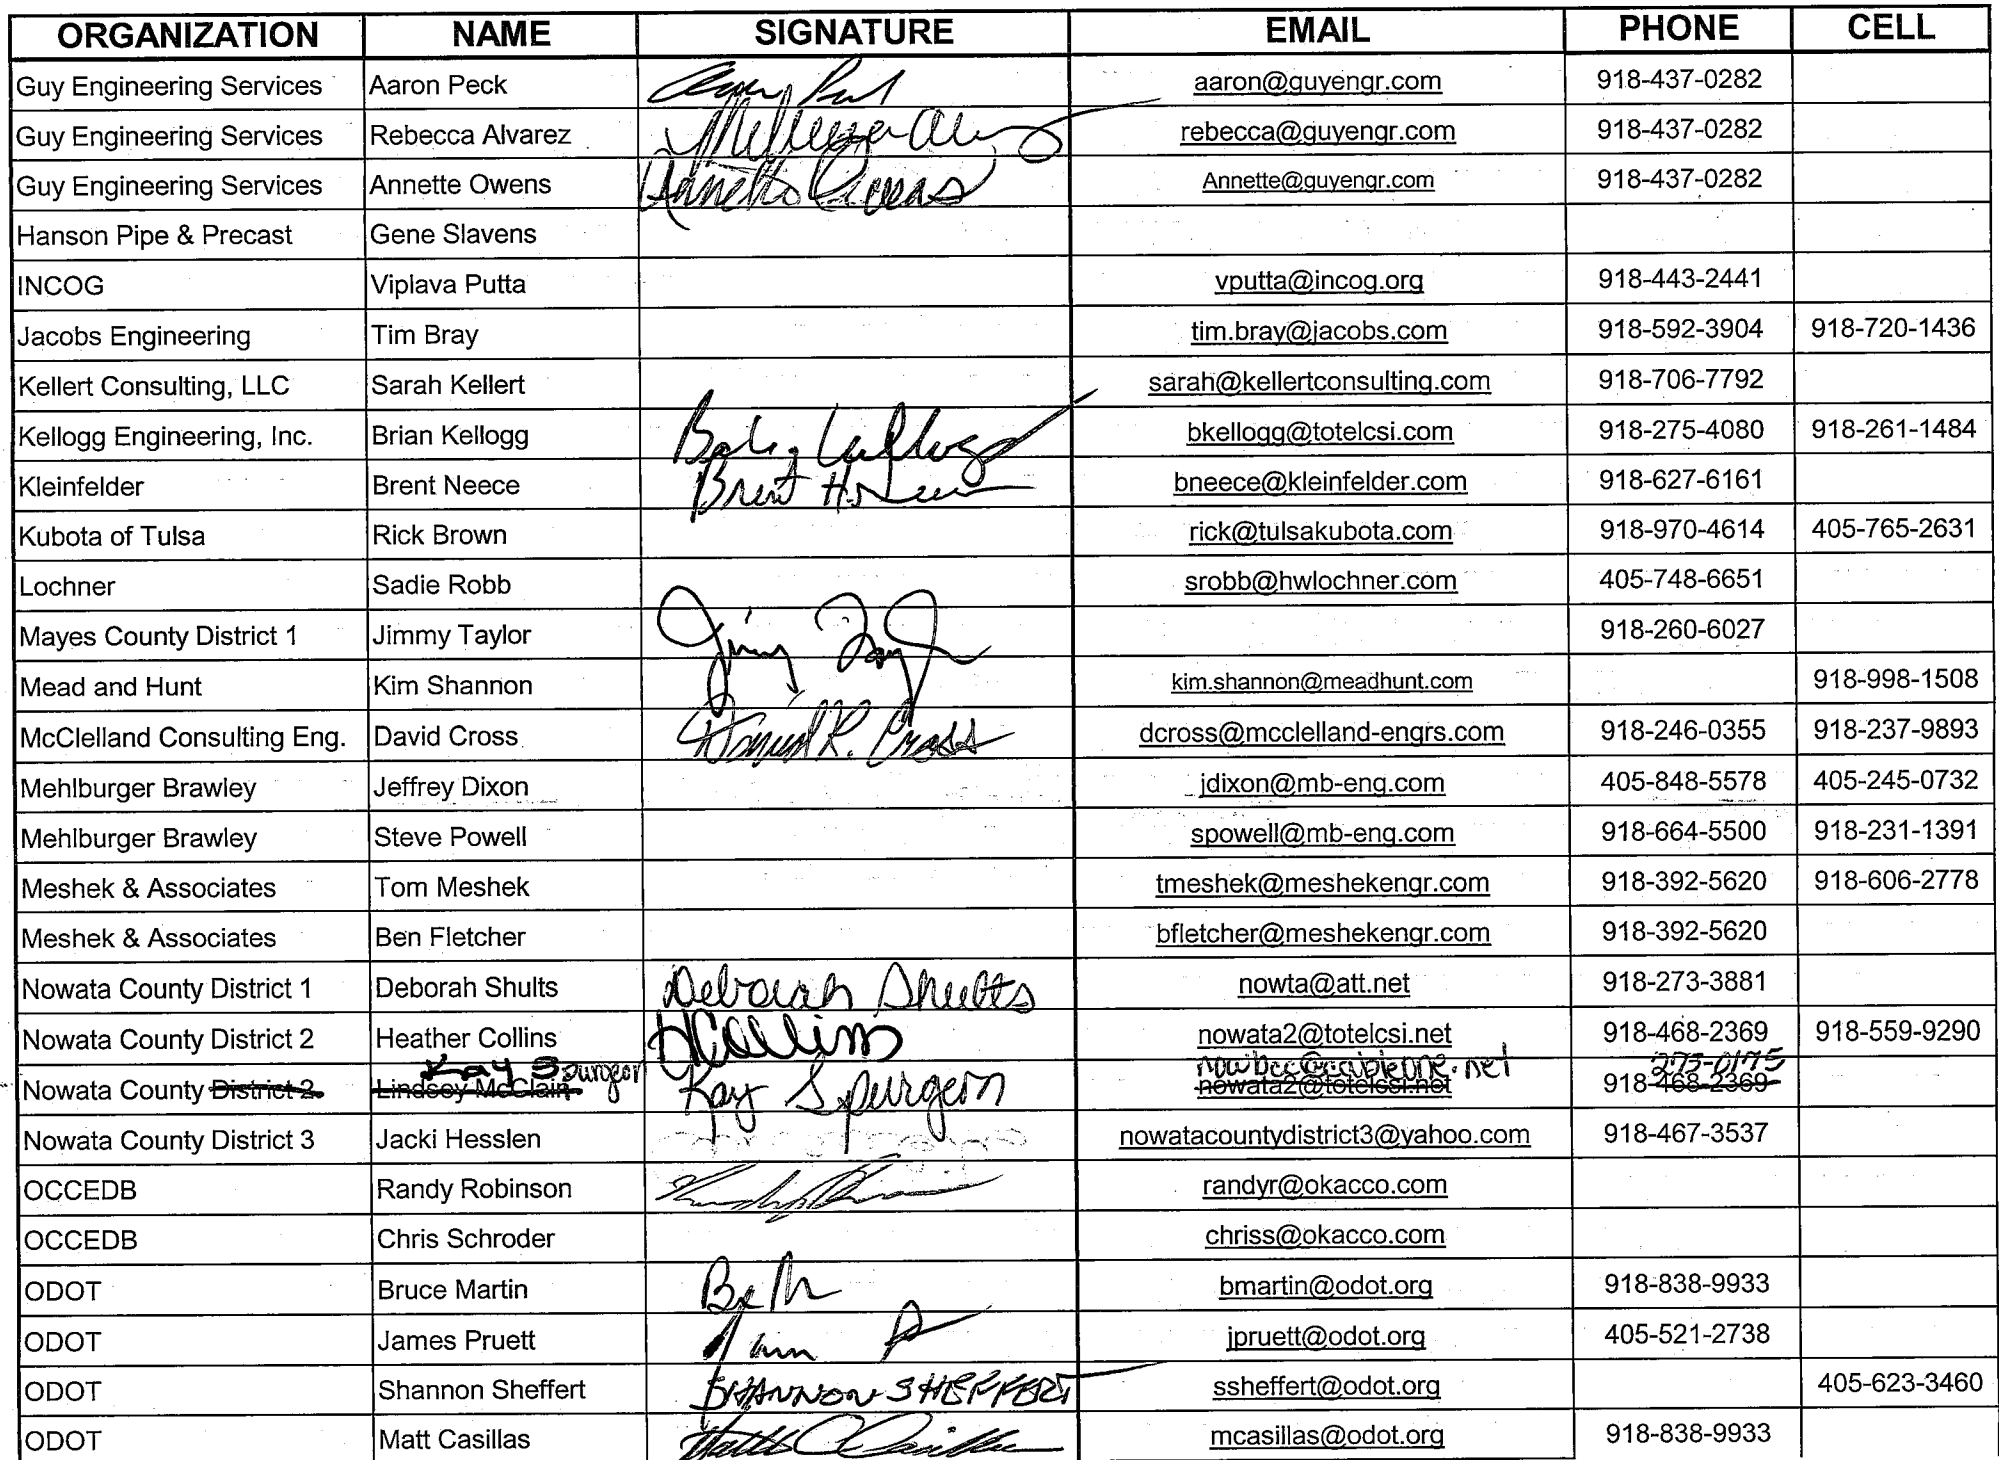 ORGANIZATION NAME SIGNATURE EMAIL PHONE CELL
Guy Engineering Services Aaron Peck aaron@guyengr.com 918-437-0282
Guy Engineering Services Rebecca Alvarez rebecca@guyengr.com 918-437-0282
Guy Engineering Services Annette Owens Annette Owens Annette@guyengr.com 918-437-0282
Hanson Pipe & Precast Gene Slavens
INCOG Viplava Putta vputta@incog.org 918-443-2441
Jacobs Engineering Tim Bray tim.bray@jacobs.com 918-592-3904 918-720-1436
Kellert Consulting, LLC Sarah Kellert sarah@kellertconsulting.com 918-706-7792
Kellogg Engineering, Inc. Brian Kellogg bkellogg@totelcsi.com 918-275-4080 918-261-1484
Kleinfelder Brent Neece Brent bneece@kleinfelder.com 918-627-6161
Kubota of Tulsa Rick Brown rick@tulsakubota.com 918-970-4614 405-765-2631
Lochner Sadie Robb srobb@hwlochner.com 405-748-6651
Mayes County District 1 Jimmy Taylor 918-260-6027
Mead and Hunt Kim Shannon kim.shannon@meadhunt.com 918-998-1508
McClelland Consulting Eng. David Cross dcross@mcclelland-engrs.com 918-246-0355 918-237-9893
Mehlburger Brawley Jeffrey Dixon jdixon@mb-eng.com 405-848-5578 405-245-0732
Mehlburger Brawley Steve Powell spowell@mb-eng.com 918-664-5500 918-231-1391
Meshek & Associates Tom Meshek tmeshek@meshekengr.com 918-392-5620 918-606-2778
Meshek & Associates Ben Fletcher bfletcher@meshekengr.com 918-392-5620
Nowata County District 1 Deborah Shults Deborah Shults nowta@att.net 918-273-3881
Nowata County District 2 Heather Collins HCollins nowata2@totelcsi.net 918-468-2369 918-559-9290
Kay Spurgeon nowbcc@cableone.net 273-0175
Nowata County District 2 Lindsey McClain Kay Spurgeon nowata2@totelcsi.net 918-468-2369
Nowata County District 3 Jacki Hesslen nowatacountydistrict3@yahoo.com 918-467-3537
OCCEDB Randy Robinson randyr@okacco.com
OCCEDB Chris Schroder chriss@okacco.com
ODOT Bruce Martin bmartin@odot.org 918-838-9933
ODOT James Pruett jpruett@odot.org 405-521-2738
ODOT Shannon Sheffert SHANNON SHEFFERT ssheffert@odot.org 405-623-3460
ODOT Matt Casillas mcasillas@odot.org 918-838-9933